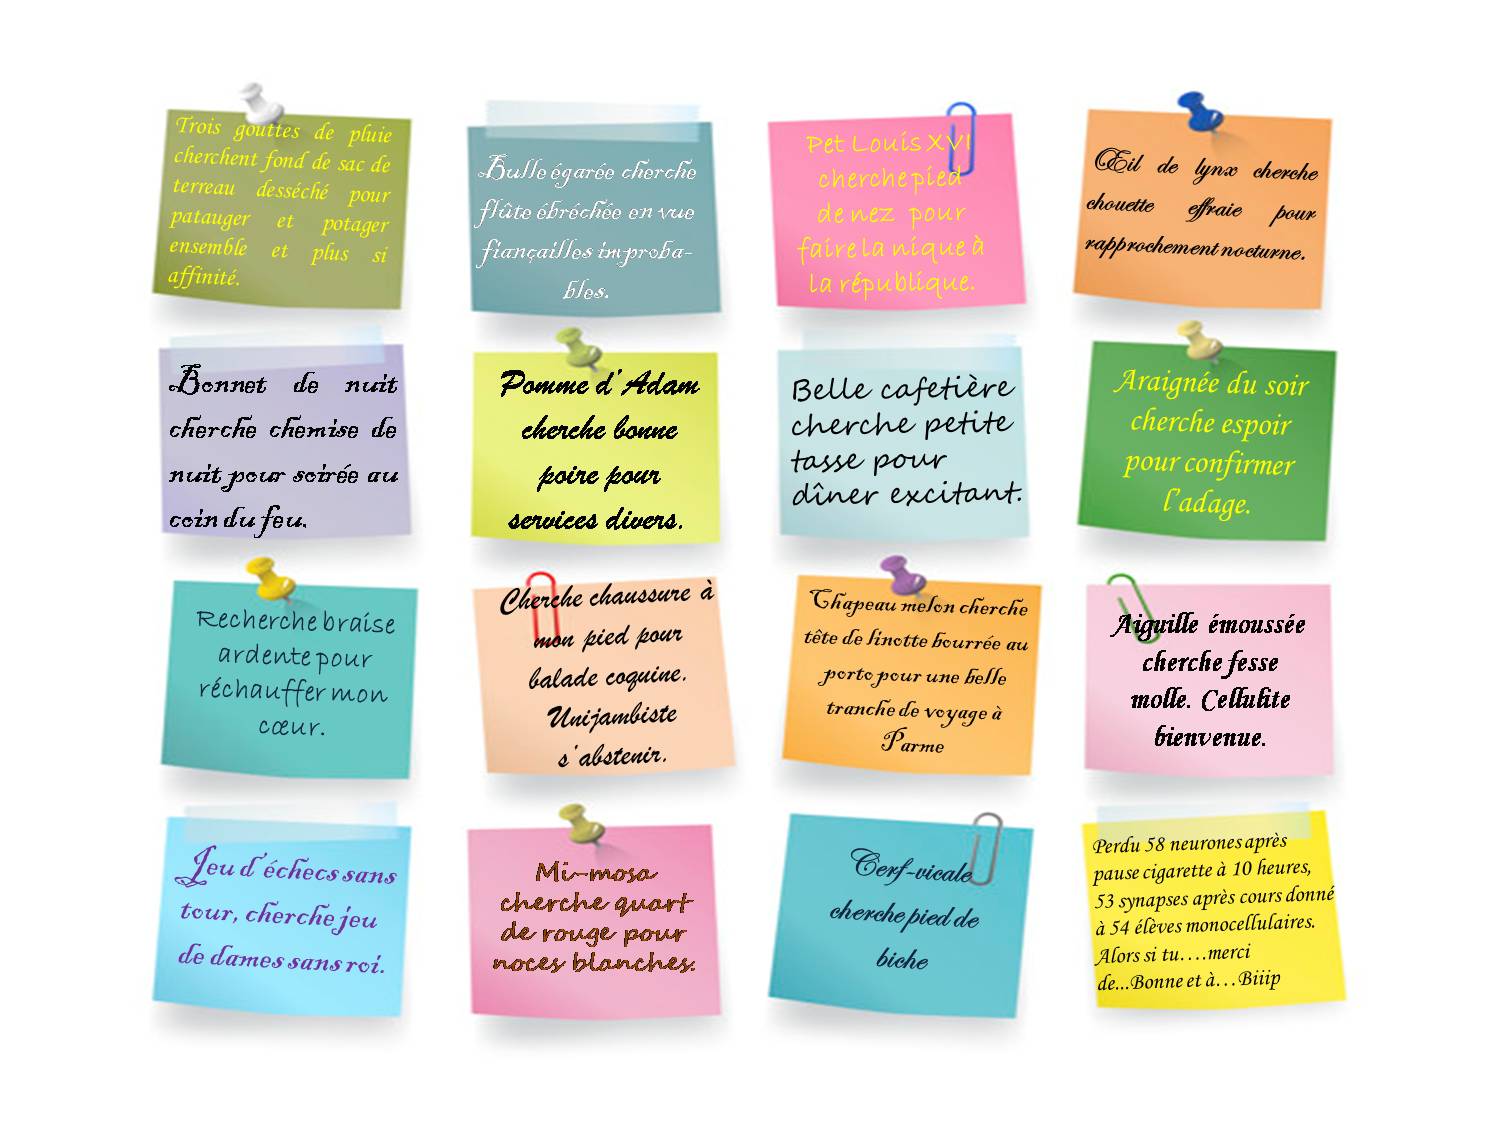 Trois gouttes de pluie
cherchent fond de sac de
terreau desséché pour
patauger et potager
ensemble et plus si
affinité.
Bulle égarée cherche
flûte ébréchée en vue
fiançailles improba-
bles.
Pet Louis XVI
cherche pied
de nez pour
faire la nique à
la république.
Œil de lynx cherche
chouette effraie pour
rapprochement nocturne.
Bonnet de nuit
cherche chemise de
nuit pour soirée au
coin du feu.
Pomme d'Adam
cherche bonne
poire pour
services divers.
Belle cafetière
cherche petite
tasse pour
dîner excitant.
Araignée du soir
cherche espoir
pour confirmer
l'adage.
Recherche braise
ardente pour
réchauffer mon
cœur.
Cherche chaussure à
mon pied pour
balade coquine.
Unijambiste
s'abstenir.
Chapeau melon cherche
tête de linotte bourrée au
porto pour une belle
tranche de voyage à
Parme
Aiguille émoussée
cherche fesse
molle. Cellulite
bienvenue.
Jeu d'échecs sans
tour, cherche jeu
de dames sans roi.
Mi-mosa
cherche quart
de rouge pour
noces blanches.
Cerf-vicale
cherche pied de
biche
Perdu 58 neurones après
pause cigarette à 10 heures,
53 synapses après cours donné
à 54 élèves monocellulaires.
Alors si tu….merci
de...Bonne et à…Biiip